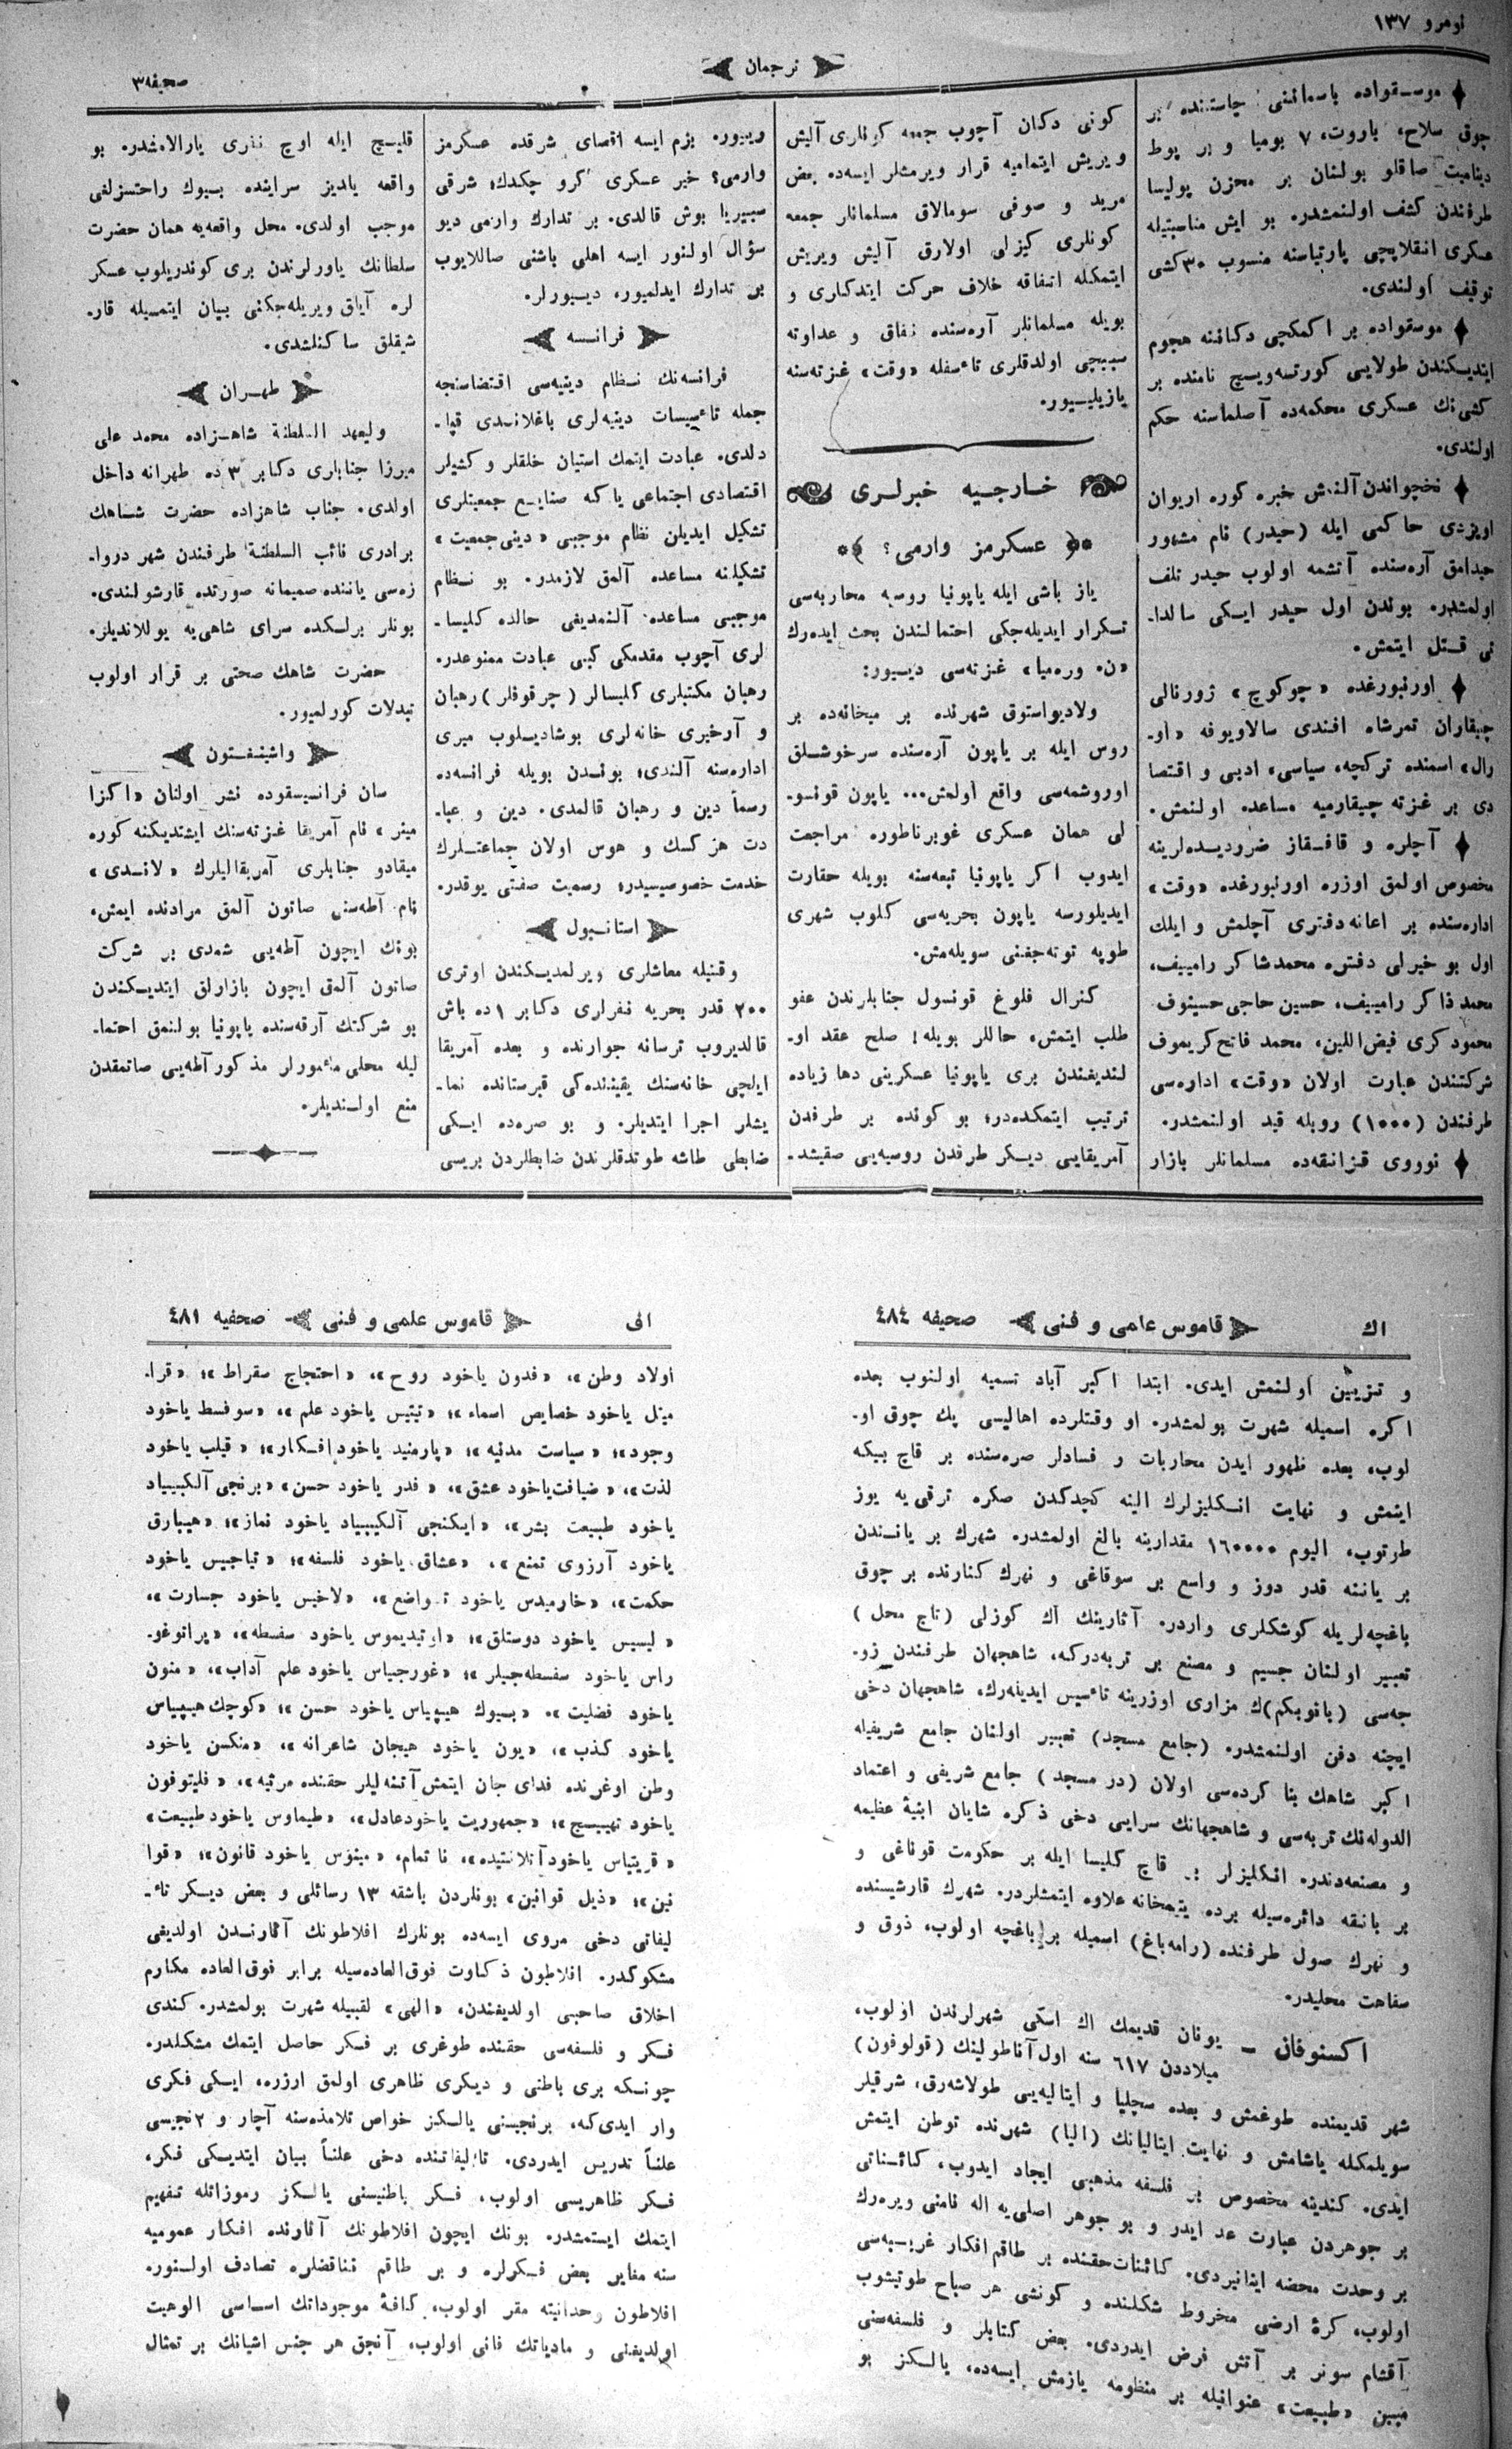 نومرو ١٣٧
ترجمان
صحیفه ٣
موسقواده باسماننی چاستنده بر
چوق سلاح، باروت، ٧ بومبا و بر پوط
دینامیت صاقلو بولنان بر مخزن پولیسا
طرفندن کشف اولنمشدر. بو ایش مناسبتیله
عسکری انقلابچی پارتیاسنه منسوب ٣٠ کشی
توقیف اولندی.
موسقواده بر اکمکچی دکاننه هجوم
ایتدیکندن طولایی کورتسه‌ویچ نامنده بر
کشی‌نك عسکری محکمه‌ده آصلماسنه حکم
اولندی.
نخچواندن آلنمش خبره کوره اریوان
اویزدی حاکمی ایله (حیدر) نام مشهور
حیدامق آره‌سنده آتشمه اولوب حیدر تلف
اولمشدر. بوندن اول حیدر ایکی سالدا-
تی قتل ایتمش.
اورنبورغده «چوکوچ» ژورنالی
چیقاران تمرشاه افندی سالاویوفه «او-
رال» اسمنده ترکچه، سیاسی، ادبی و اقتصا
دی بر غزته چیقارمیه مساعده اولنمش.
آچلره و قافقاز ضرردیده‌لرینه
مخصوص اولمق اوزره اورنبورغده «وقت»
اداره‌سنده بر اعانه دفتری آچلمش و ایلك
اول بو خیرلی دفتره محمدشاکر رامییف،
محمد ذاکر رامییف، حسین حاجی حسینوف
محمود کری فیض‌اللین، محمد فاتح کریموف
شرکتندن عبارت اولان «وقت» اداره‌سی
طرفندن (١٠٠٠) روبله قید اولنمشدر.
نووروی قزانقه‌ده مسلمانلر بازار
کونی دکان آچوب جمعه کونلری آلیش
ویریش ایتمامیه قرار ویرمشلر ایسه‌ده بعض
مرید و صوفی سومالاق مسلمانلر جمعه
کونلری کیزلی اولارق آلیش ویریش
ایتمکله اتفاقه خلاف حرکت ایتدکلری و
بویله مسلمانلر آره‌سنده نفاق و عداوته
سببچی اولدقلری تأسفله «وقت» غزته‌سنه
یازیلیور.
خارجیه خبرلری
عسکرمز وارمی؟
یاز باشی ایله یاپونیا روسیه محاربه‌سی
تکرار ایدیله‌جکی احتمالندن بحث ایده‌رك
«ن. وره‌میا» غزته‌سی دیسیور:
ولادیواستوق شهرنده بر میخانه‌ده بر
روس ایله بر یاپون آره‌سنده سرخوشلق
اوروشمه‌سی واقع اولمش... یاپون قونسو-
لی همان عسکری غوبرناطوره مراجعت
ایدوب اکر یاپونیا تبعه‌سنه بویله حقارت
ایدیلورسه یاپون بحریه‌سی کلوب شهری
طوپه توته‌جغنی سویله‌مش.
کنرال فلوغ قونسول جنابلرندن عفو
طلب ایتمش، حاللر بویله! صلح عقد او-
لندیغندن بری یاپونیا عسکرینی دها زیاده
ترتیب ایتمکده‌در؛ بو کونده بر طرفدن
آمریقایی دیکر طرفدن روسیه‌یی صقیشد-
ریبور. بزم ایسه اقصای شرقده عسکرمز
وارمی؟ خیر عسکری کرو چکدك؛ شرقی
سیبریا بوش قالدی. بر تدارك وارمی دیو
سؤال اولنور ایسه اهلی باشنی صاللایوب
بر تدارك ایدلمیور، دیبورلر.
فرانسه
فرانسه‌نك نظام دینیه‌سی اقتضاسنجه
جمله تأسیسات دینیه‌لری باغلاندی قپا-
دلدی. عبادت ایتمك استیان خلقلر و کشیلر
اقتصادی اجتماعی یاکه صنایع جمعیتلری
تشکیل ایدیلن نظام موجبی «دینی جمعیت»
تشکیلنه مساعده آلمق لازمدر. بو نظام
موجبی مساعده آلنمدیغی حالده کلیسا-
لری آچوب مقدمکی کبی عبادت ممنوعدر.
رهبان مکتبلری کلیسالر (چرقوفلر) رهبان
و آرخیری خانه‌لری بوشادیلوب میری
اداره‌سنه آلندی؛ بوندن بویله فرانسه‌ده
رسماً دین و رهبان قالمدی. دین و عبا-
دت هر کسك و هوس اولان جماعتلرك
خدمت خصوصیسیدر؛ رسمیت صفتی یوقدر.
استانبول
وقتیله معاشلری ویرلمدیکندن اوتری
٢٠٠ قدر بحریه نفرلری دکابر ١ ده باش
قالدیروب ترسانه جوارنده و بعده آمریقا
ایلچی خانه‌سنك یقیننده‌کی قبرستانده نما-
یشلر اجرا ایتدیلر. و بو صره‌ده ایکی
ضابطی طاشه طوتدقلرندن ضابطلردن بریسی
قلیچ ایله اوچ نفری یارالامشدر. بو
واقعه یلدیز سراینده بیوك راحتسزلغی
موجب اولدی. محل واقعه‌یه همان حضرت
سلطانك یاورلرندن بری کوندریلوب عسکر
لره آیاق ویریله‌جکنی بیان ایتمسیله قار-
شیقلق ساکنلشدی.
طهران
ولیعهد السلطنة شاهزاده محمد علی
میرزا جنابلری دکابر ٣ ده طهرانه داخل
اولدی. جناب شاهزاده حضرت شاهك
برادری نائب السلطنة طرفندن شهر دروا-
زه‌سی یاننده صمیمانه صورتده قارشولندی.
بونلر برلکده سرای شاهی‌یه یوللاندیلر.
حضرت شاهك صحتی بر قرار اولوب
تبدلات کورلمیور.
واشینغتون
سان فرانسیسقوده نشر اولنان «اکزا
مینر» نام آمریقا غزته‌سنك ایشتدیکنه کوره
میقادو جنابلری آمریقالیلرك «لاندی»
نام آطه‌سنی صاتون آلمق مرادنده ایمش،
بونك ایچون آطه‌یی شمدی بر شرکت
صاتون آلمق ایچون بازارلق ایتدیکندن
بو شرکتك آرقه‌سنده یاپونیا بولنمق احتما-
لیله محلی مأمورلر مذکور آطه‌یی صاتمقدن
منع اولندیلر.
اك
قاموس علمی و فنی
صحیفه ٤٨٤
و تزیین اولنمش ایدی. ابتدا اکبر آباد تسمیه اولنوب بعده
اکره اسمیله شهرت بولمشدر. او وقتلرده اهالیسی پك چوق او-
لوب، بعده ظهور ایدن محاربات و فسادلر صره‌سنده بر قاچ بیکه
ایتمش و نهایت انکلیزلرك الینه کچدکدن صکره ترقی‌یه یوز
طوتوب، الیوم ١٦٠٠٠٠ مقدارینه بالغ اولمشدر. شهرك بر یانندن
بر یاننه قدر دوز و واسع بر سوقاغی و نهرك کنارنده بر چوق
باغچه‌لریله کوشکلری واردر. آثارینك اك کوزلی (تاج محل)
تعبیر اولنان جسیم و مصنع بر تربه‌درکه، شاهجهان طرفندن زو-
جه‌سی (بانوبکم)ك مزاری اوزرینه تأسیس ایدینه‌رك، شاهجهان دخی
ایچنه دفن اولنمشدر. (جامع مسجد) تعبیر اولنان جامع شریفیله
اکبر شاهك بنا کرده‌سی اولان (در مسجد) جامع شریفی و اعتماد
الدوله‌نك تربه‌سی و شاهجهانك سرایی دخی ذکره شایان ابنیهٔ عظیمه
و مصنعه‌دندر. انکلیزلر بر قاچ کلیسا ایله بر حکومت قوناغی و
بر بانقه دائره‌سیله برده یتیمخانه علاوه ایتمشلردر. شهرك قارشیسنده
و نهرك صول طرفنده (رامه‌باغ) اسمیله بر باغچه اولوب، ذوق و
سفاهت محلیدر.
اکسنوفان — یونان قدیمك اك اسکی شهرلرندن اولوب،
میلاددن ٦١٧ سنه اول آناطولینك (قولوفون)
شهر قدیمنده طوغمش و بعده سچلیا و ایتالیه‌یی طولاشه‌رق، شرقیلر
سویلمکله یاشامش و نهایت ایتالیانك (الیا) شهرنده توطن ایتمش
ایدی. کندینه مخصوص بر فلسفه مذهبی ایجاد ایدوب، کائناتی
بر جوهردن عبارت عد ایدر و بو جوهر اصلی‌یه اله نامنی ویره‌رك
بر وحدت محضه اینانیردی. کائنات حقنده بر طاقم افکار غریبه‌سی
اولوب، کرهٔ ارضی مخروط شکلنده و کونشی هر صباح طوتیشوب
آقشام سونر بر آتش فرض ایدردی. بعض کتابلر و فلسفه‌سنی
مبین «طبیعت» عنوانیله بر منظومه یازمش ایسه‌ده، یالکز بو
افی
قاموس علمی و فنی
صحیفه ٤٨١
اولاد وطن»، «فدون یاخود روح»، «احتجاج سقراط»؛ «قرا-
میل یاخود خصایص اسماء»؛ «تیتیس یاخود علم»، «سوفسط یاخود
وجود»؛ «سیاست مدنیه»؛ «پارمنید یاخود افکار»؛ «فیلب یاخود
لذت»، «ضیافت یاخود عشق»، «فدر یاخود حسن» «برنجی آلکیبیاد
یاخود طبیعت بشر»، «ایکنجی آلکیبیاد یاخود نماز»؛ «هیپارق
یاخود آرزوی تمتع»، «عشاق یاخود فلسفه»؛ «تیاجیس یاخود
حکمت»، «خارمیدس یاخود تواضع»، «لاخیس یاخود جسارت»،
«لیسیس یاخود دوستلق»؛ «اوتیدیموس یاخود سفسطه»، «پراتوغو-
راس یاخود سفسطه‌جیلر»؛ «غورجیاس یاخود علم آداب»، «منون
یاخود فضلیت». «بیوك هیپیاس یاخود حسن»؛ «کوچك هیپیاس
یاخود کذب»، «یون یاخود هیجان شاعرانه»، «منکسن یاخود
وطن اوغرنده فدای جان ایتمش آتنه‌لیلر حقنده مرثیه»، «فلیتوفون
یاخود تهییج»؛ «جمهوریت یاخود عادل»، «طیماوس یاخود طبیعت»
«قریتیاس یاخود آتلانتیده»، نا تمام، «مینوس یاخود قانون»؛ «قوا
نین»؛ «ذیل قوانین» بونلردن باشقه ١٣ رسائلی و بعض دیکر تأ-
لیفاتی دخی مروی ایسه‌ده بونلرك افلاطونك آثارندن اولدیغی
مشکوکدر. افلاطون ذکاوت فوق‌العاده‌سیله برابر فوق‌العاده مکارم
اخلاق صاحبی اولدیغندن، «الهی» لقبیله شهرت بولمشدر. کندی
فکر و فلسفه‌سی حقنده طوغری بر فکر حاصل ایتمك مشکلدر.
چونکه بری باطنی و دیکری ظاهری اولمق ارزره، ایکی فکری
وار ایدی‌که، برنجیسنی یالکز خواص تلامذه‌سنه آچار و ٢نجیسی
علناً تدریس ایدردی. تألیفاتنده دخی علناً بیان ایتدیکی فکر،
فکر ظاهریسی اولوب، فکر باطنیسنی یالکز رموزاتله تفهیم
ایتمك ایستمشدر. بونك ایچون افلاطونك آثارنده افکار عمومیه
سنه مغایر بعض فکرلره و بر طاقم تناقضلره تصادف اولنور.
افلاطون وحدانیته مقر اولوب، کافهٔ موجوداتك اساسی الوهیت
اولدیغنی و مادیاتك فانی اولوب، آنجق هر جنس اشیانك بر تمثال